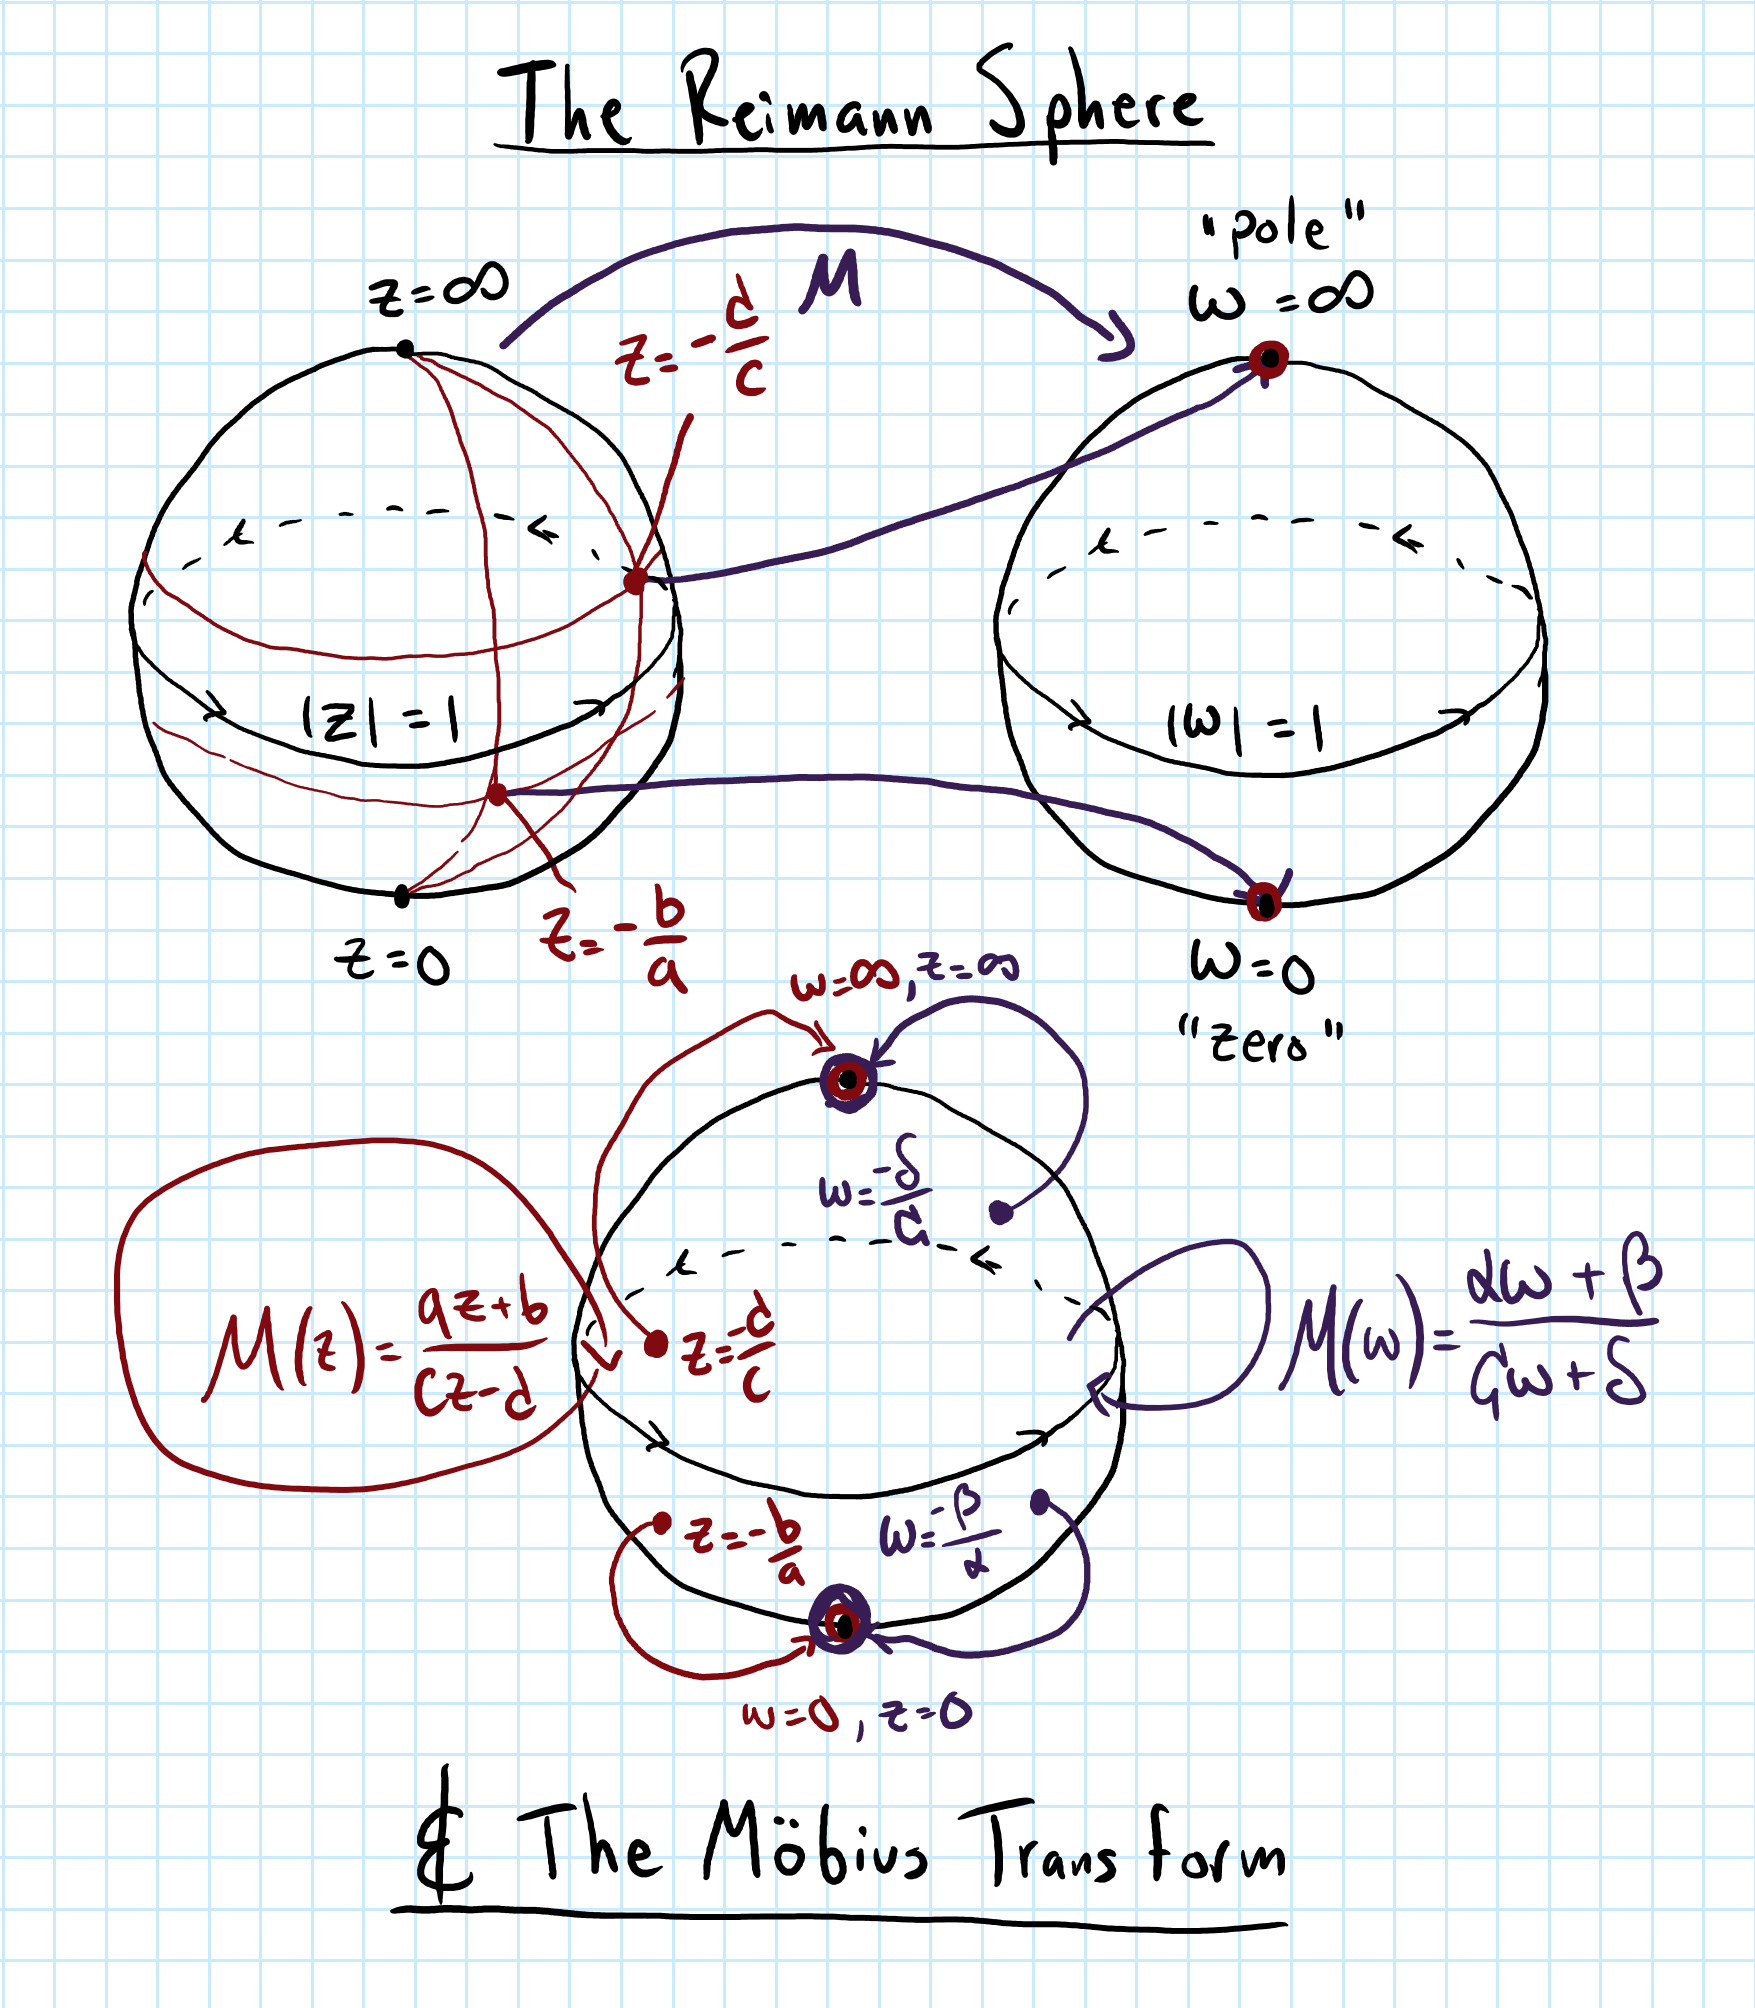 The Reimann Sphere
"pole"
z=∞
M
w=∞
z=-d/c
|z|=1
|w|=1
z=-b/a
z=0
w=0
"zero"
w=∞, z=∞
w=-δ/G
M(z)=az+b/cz-d
z=-d/c
M(w)=αw+β/Gw+δ
z=-b/a
w=-β/α
w=0, z=0
& The Möbius Transform